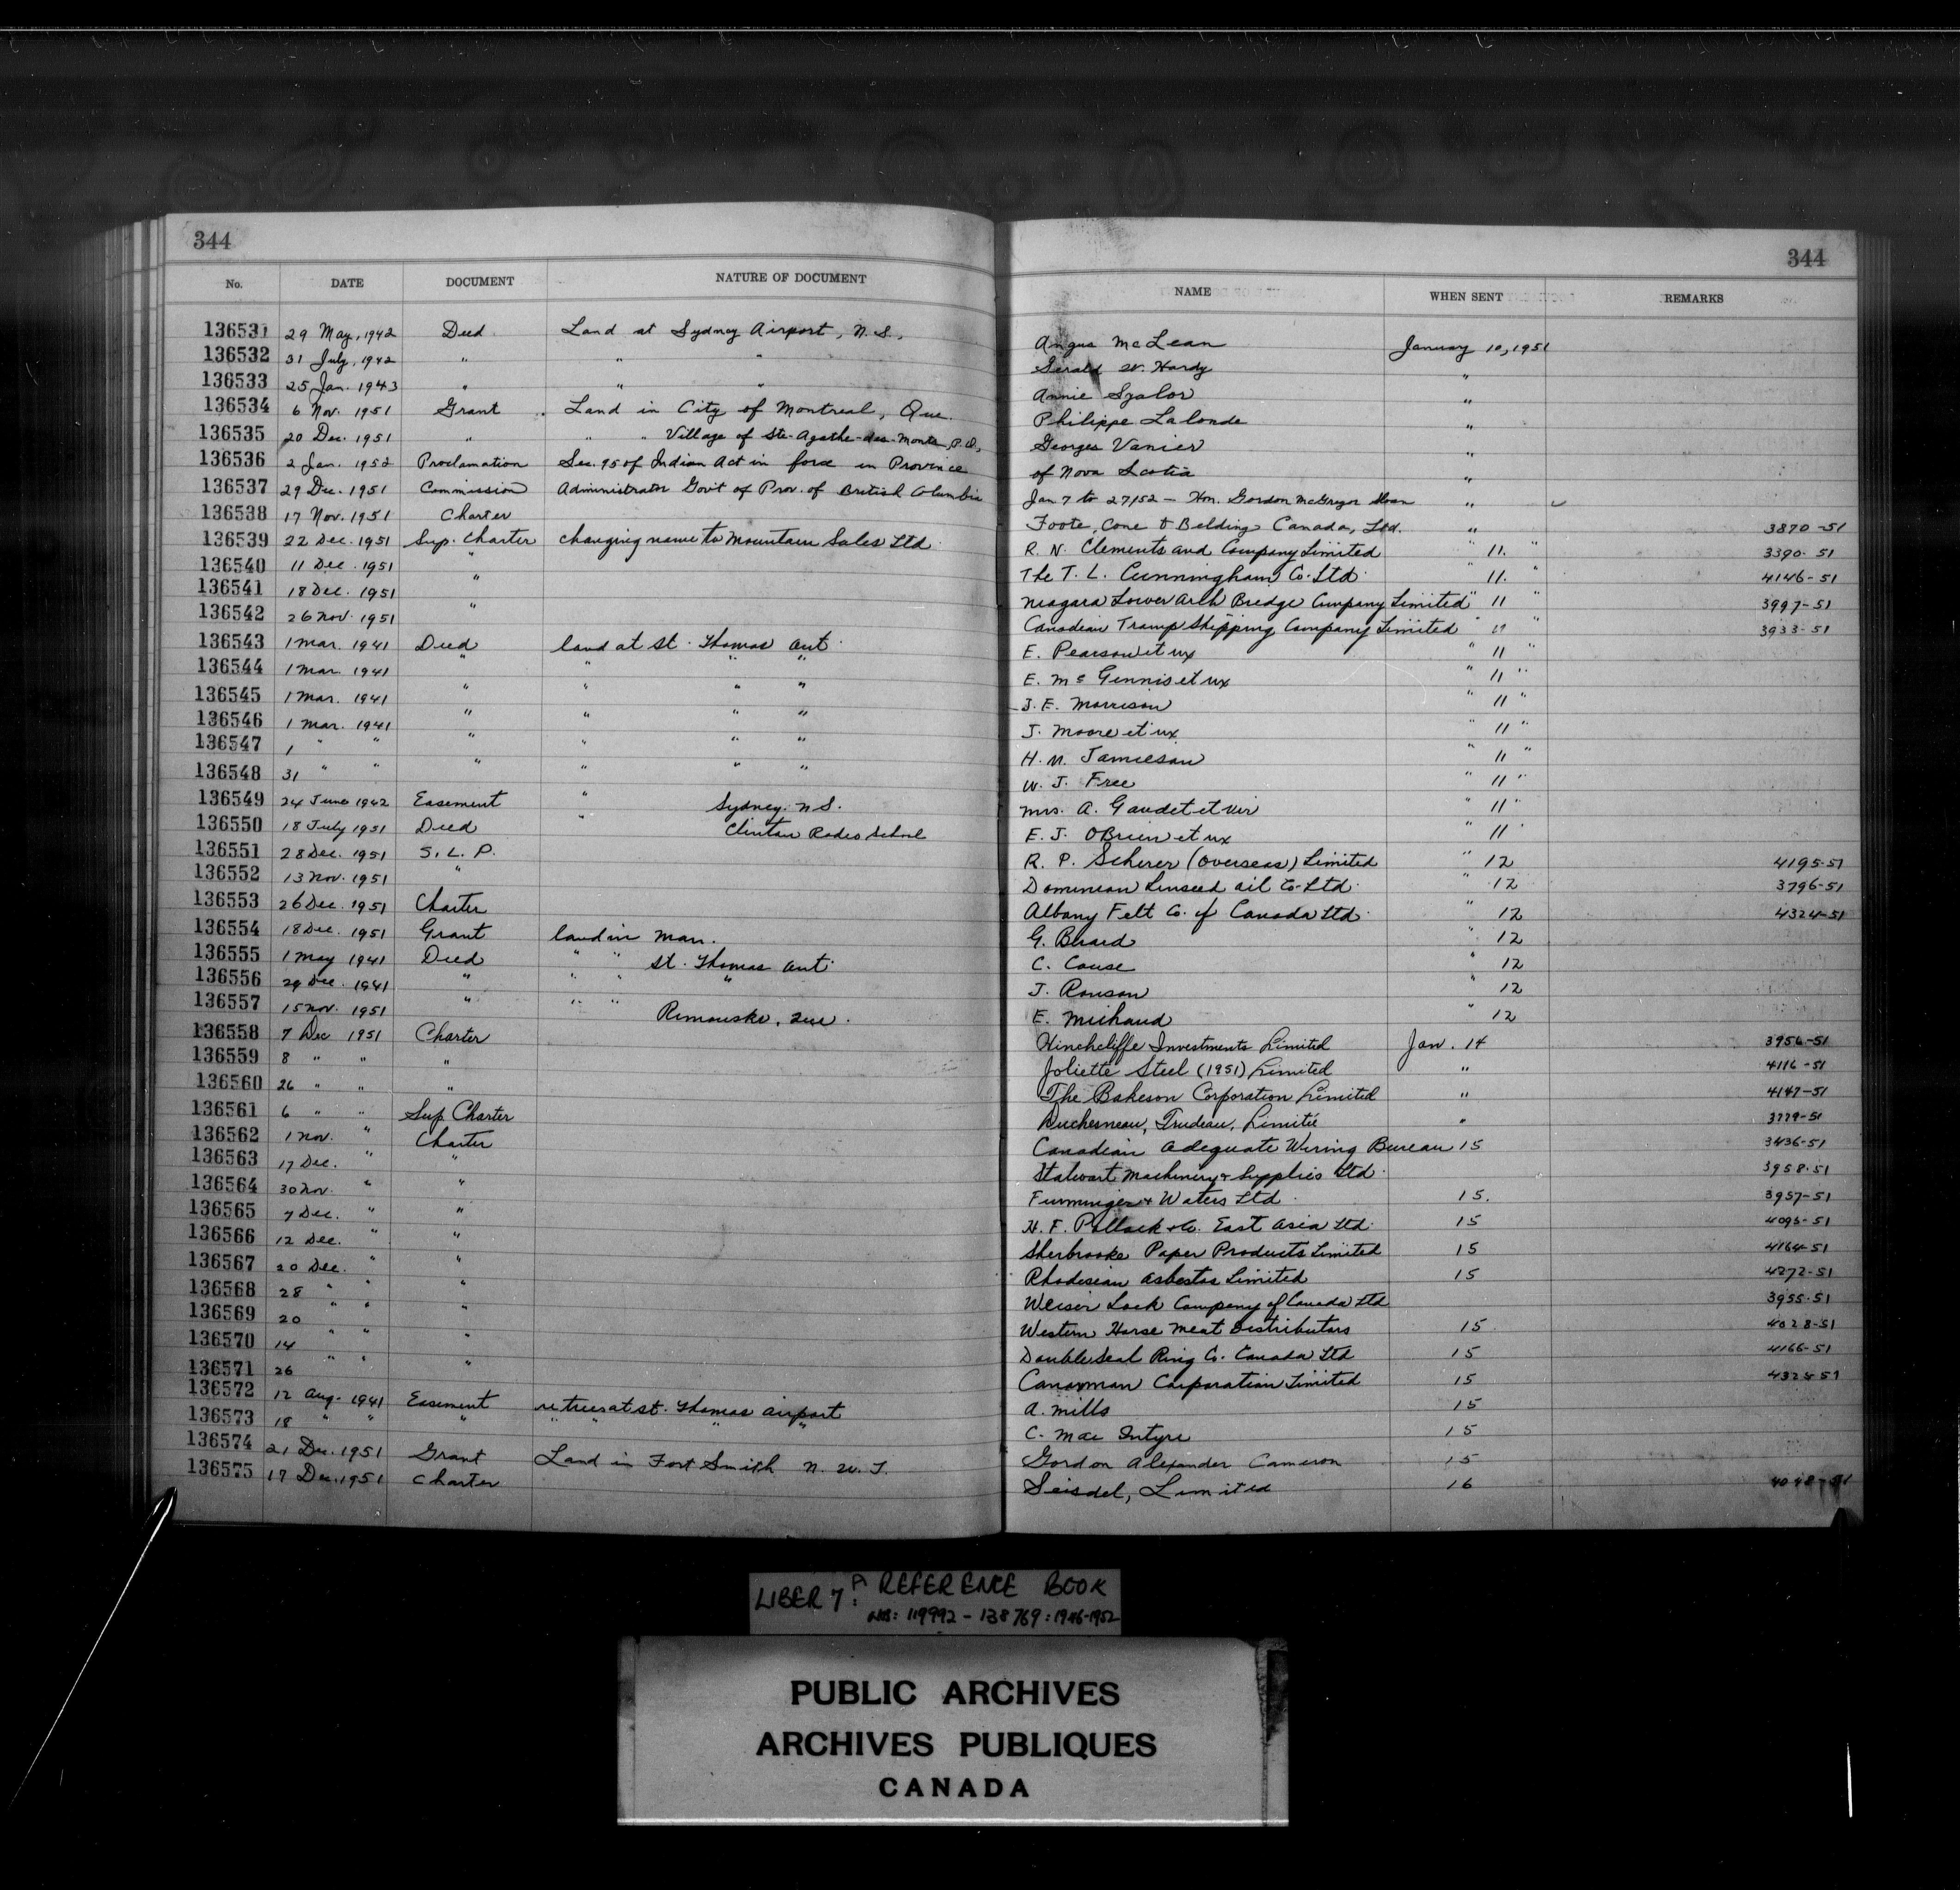 344
344
No. DATE DOCUMENT NATURE OF DOCUMENT NAME WHEN SENT REMARKS
136531 29 May, 1942 Deed Land at Sydney Airport, N.S., Angus McLean January 10, 1951
136532 31 July, 1942 " " " Gerald W. Hardy "
136533 25 Jan. 1943 " " " Annie Syalor "
136534 6 Nov. 1951 Grant Land in City of Montreal, Que. Philippe Lalonde "
136535 20 Dec. 1951 " " " Village of Ste-Agathe-des-Monts, P.Q., Georges Vanier "
136536 2 Jan. 1952 Proclamation Sec. 95 of Indian Act in force in Province of Nova Scotia "
136537 29 Dec. 1951 Commission Administrator Gov't of Prov. of British Columbia Jan 7 to 27/52 — Hon. Gordon McGregor Sloan "
136538 17 Nov. 1951 Charter Foote, Cone & Belding Canada, Ltd. " 3870-51
136539 22 Dec. 1951 Sup. Charter changing name to Mountain Sales Ltd. R. N. Clements and Company Limited " 11. " 3390-51
136540 11 Dec. 1951 " The T. L. Cunningham Co. Ltd. 11. " 4146-51
136541 18 Dec. 1951 " Niagara Lower Arch Bridge Company Limited " 11 " 3997-51
136542 26 Nov. 1951 " Canadian Tramp Shipping Company Limited " 11 " 3933-51
136543 1 Mar. 1941 Deed land at St. Thomas Ont. E. Pearson et ux " 11 "
136544 1 Mar. 1941 " " " " E. McGinnis et ux " 11 "
136545 1 Mar. 1941 " " " " J. E. Morrison " 11 "
136546 1 Mar. 1941 " " " " J. Moore et ux " 11 "
136547 1 " " " " " " H. M. Jamieson " 11 "
136548 31 " " " " " " W. J. Free " 11 "
136549 24 June 1942 Easement " Sydney. N.S. Mrs. A. Gaudet et vir " 11 "
136550 18 July 1951 Deed " Clinton Radio School E. J. OBrien et ux " 11 "
136551 28 Dec. 1951 S. L. P. R. P. Scherer (Overseas) Limited " 12 4195-51
136552 13 Nov. 1951 " Dominion Linseed Oil Co. Ltd. " 12 3796-51
136553 26 Dec. 1951 Charter Albany Felt Co. of Canada Ltd. " 12 4324-51
136554 18 Dec. 1951 Grant land in Man. G. Beard " 12
136555 1 May 1941 Deed " " St. Thomas Ont. C. Couse " 12
136556 29 Dec. 1941 " " " " J. Rowson " 12
136557 15 Nov. 1951 " " " Rimouski, Que. E. Michaud " 12
136558 7 Dec 1951 Charter Hinchcliffe Investments Limited Jan. 14 3956-51
136559 8 " " " Joliette Steel (1951) Limited " 4116-51
136560 26 " " " The Bakeson Corporation Limited " 4147-51
136561 6 " " Sup Charter Duchesneau, Trudeau, Limitée " 3779-51
136562 1 Nov. " Charter Canadian Adequate Wiring Bureau 15 3436-51
136563 17 Dec. " " Stalwart Machinery & Supplies Ltd. 3958-51
136564 30 Nov. " " Furminger & Waters Ltd. 15. 3957-51
136565 7 Dec. " " H. F. Pollock & Co. East Asia Ltd. 15 4095-51
136566 12 Dec. " " Sherbrooke Paper Products Limited 15 4164-51
136567 20 Dec. " " Rhodesian Asbestos Limited 15 4272-51
136568 28 " " " Weiser Lock Company of Canada Ltd 3955-51
136569 20 " " " Western Horse Meat Distributors 15 4028-51
136570 14 " " " Double Seal Ring Co. Canada Ltd 15 4166-51
136571 26 " " " Canaxman Corporation Limited 15 4325-51
136572 12 Aug. 1941 Easement re trees at St. Thomas Airport A. Mills 15
136573 18 " " " " " " " C. MacIntyre 15
136574 21 Dec. 1951 Grant Land in Fort Smith N. W. T. Gordon Alexander Cameron 15
136575 17 Dec. 1951 Charter Seisdel, Limited 16 4048-51
LIBER 7A: REFERENCE BOOK
NOS: 119992 - 138769: 1946-1952
PUBLIC ARCHIVES
ARCHIVES PUBLIQUES
CANADA